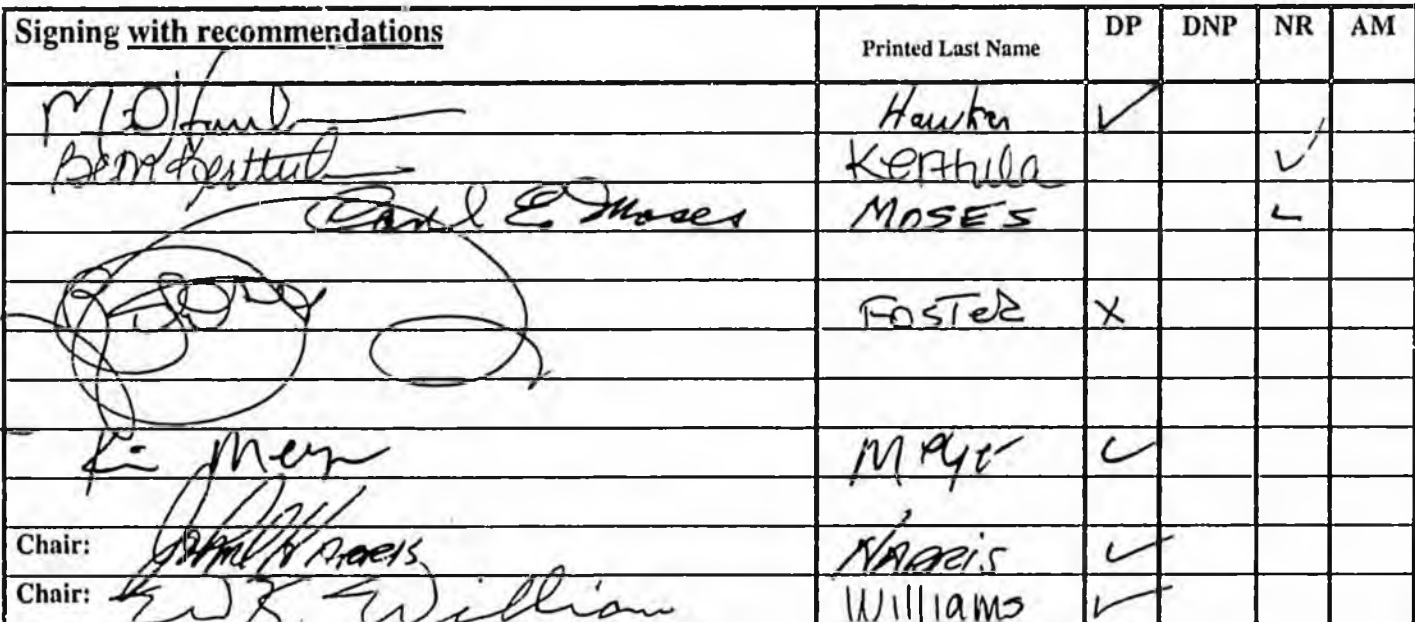 Signing with recommendations Printed Last Name DP DNP NR AM
Hawker ✓
Kerttula ✓
Carl E. Moses MOSES ✓
FOSTER X
Meyer ✓
Chair: John Harris HARRIS ✓
Chair: Williams Williams ✓